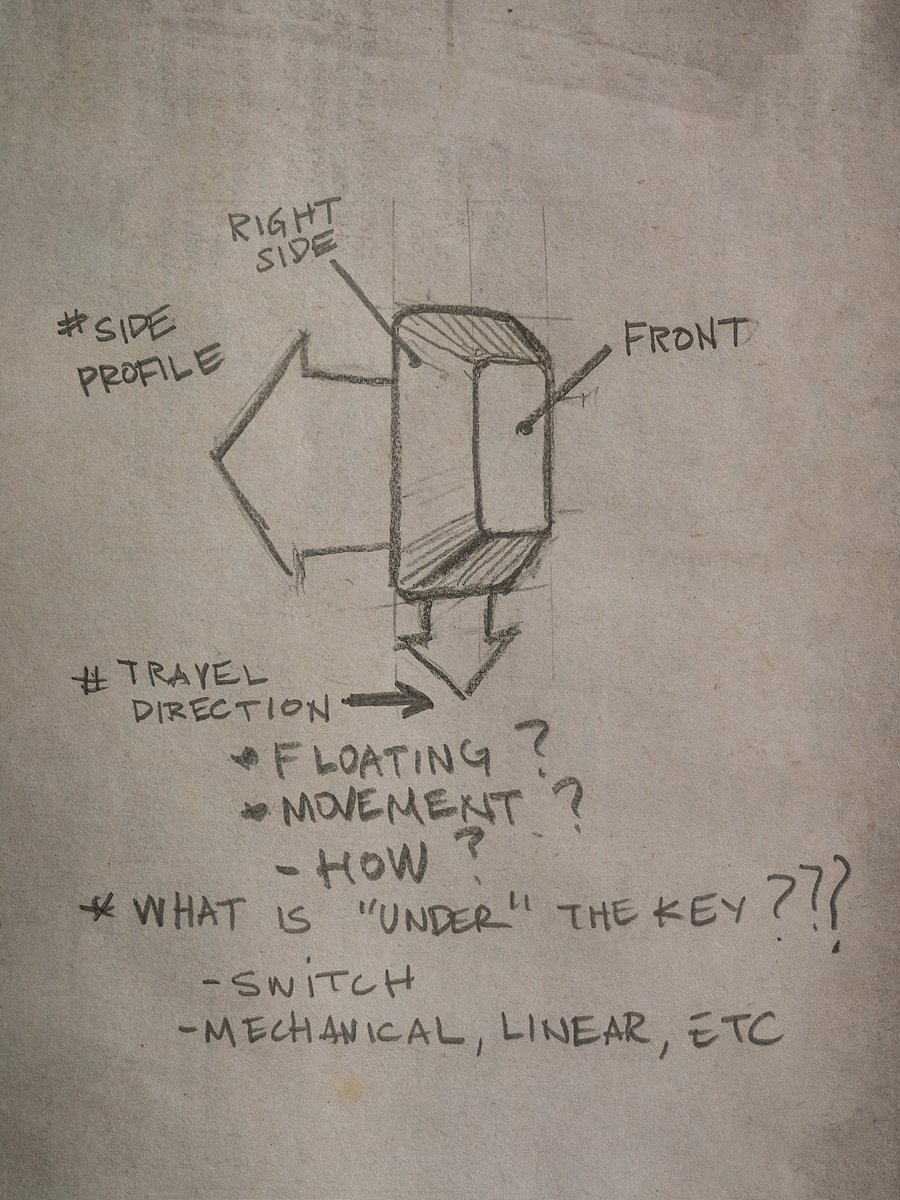 RIGHT
SIDE
# SIDE
PROFILE
FRONT
# TRAVEL
DIRECTION
• FLOATING ?
• MOVEMENT ?
- HOW ?
* WHAT IS "UNDER" THE KEY ???
- SWITCH
- MECHANICAL, LINEAR, ETC